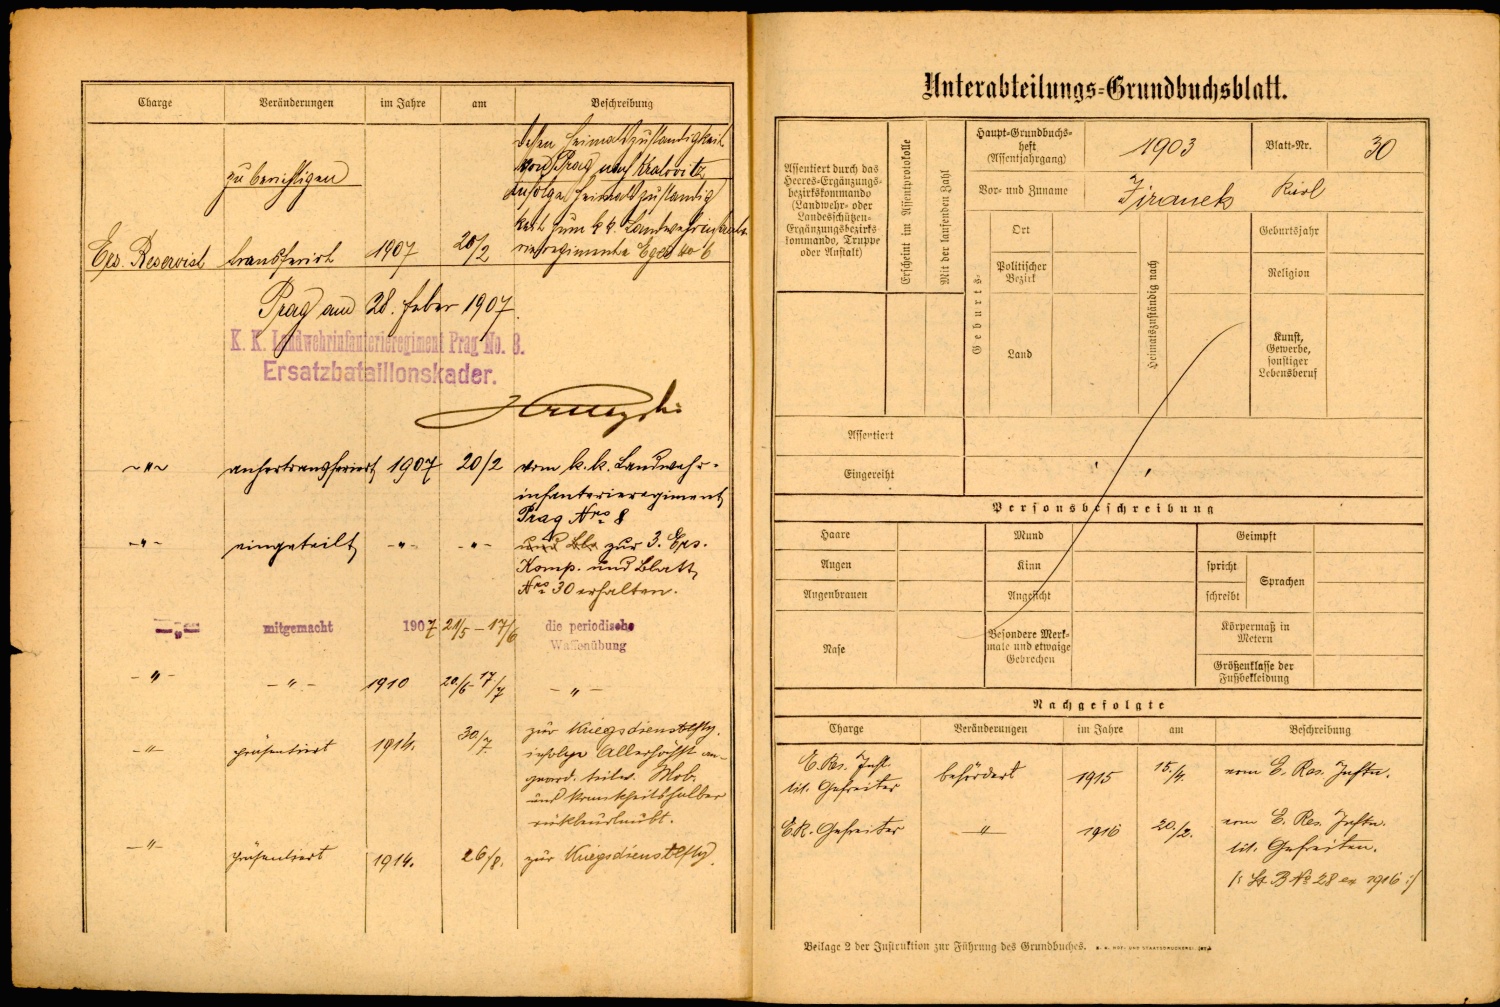 Charge Veränderungen im Jahre am Beschreibung
dessen Heimatszuständigkeit
zu berichtigen von Prag nach Kralovitz
infolge Heimatszuständig
keit zum k. k. Landwehrinfante
Ers. Reservist transferirt 1907 20/2 rieregimente Eger No 6
Prag am 28. Feber 1907.
K. K. Landwehrinfanterieregiment Prag No. 8.
Ersatzbataillonskader.
~"~ anhertransferiert 1907 20/2 vom k. k. Landwehr-
infanterieregiment
Prag Nro 8
-"- eingeteilt -"- -"- und Bla zur 3. Ers.
Komp. und Blatt
Nro 30 erhalten.
-"- mitgemacht 1907 21/5 - 17/6 die periodische
Waffenübung
-"- -"- 1910 20/6 - 17/7 -"-
-"- präsentiert 1914. 30/7 zur Kriegsdienstlstg.
infolge Allerhöchst an-
geord. teilw. Mob.
und krankheitshalber
rückbeurlaubt.
-"- präsentiert 1914. 26/8. zur Kriegsdienstlstg.
Unterabteilungs-Grundbuchsblatt.
Assentiert durch das
Heeres-Ergänzungs-
bezirkskommando
(Landwehr- oder
Landesschützen-
Ergänzungsbezirks-
kommando, Truppe
oder Anstalt)
Erscheint im Assentprotokolle
Mit der laufenden Zahl
Haupt-Grundbuchs-
heft
(Assentjahrgang)
1903 Blatt-Nr. 30
Vor- und Zuname Jiranek Karl
Geburts-
Ort
Politischer
Bezirk
Land
Heimatszuständig nach
Geburtsjahr
Religion
Kunst,
Gewerbe,
sonstiger
Lebensberuf
Assentiert
Eingereiht
Personsbeschreibung
Haare Mund Geimpft
Augen Kinn spricht Sprachen
Augenbrauen Angesicht schreibt
Nase Besondere Merk-
male und etwaige
Gebrechen
Körpermaß in
Metern
Größenklasse der
Fußbekleidung
Nachgefolgte
Charge Veränderungen im Jahre am Beschreibung
E. Res. Inft. befördert 1915 15./4. vom E. Res. Inftn.
tit. Gefreiter
ER. Gefreiter -"- 1916 20./2. vom E. Res. Inftn.
tit. Gefreiten.
/: St B No 28 ex 1916 :/
Beilage 2 der Instruktion zur Führung des Grundbuches. K. K. HOF- UND STAATSDRUCKEREI.